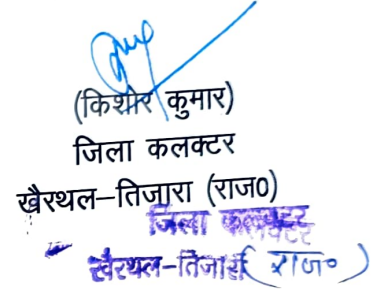 (किशोर कुमार)
जिला कलक्टर
खैरथल–तिजारा (राज०)
जिला कलक्टर
खैरथल-तिजारा (राज०)